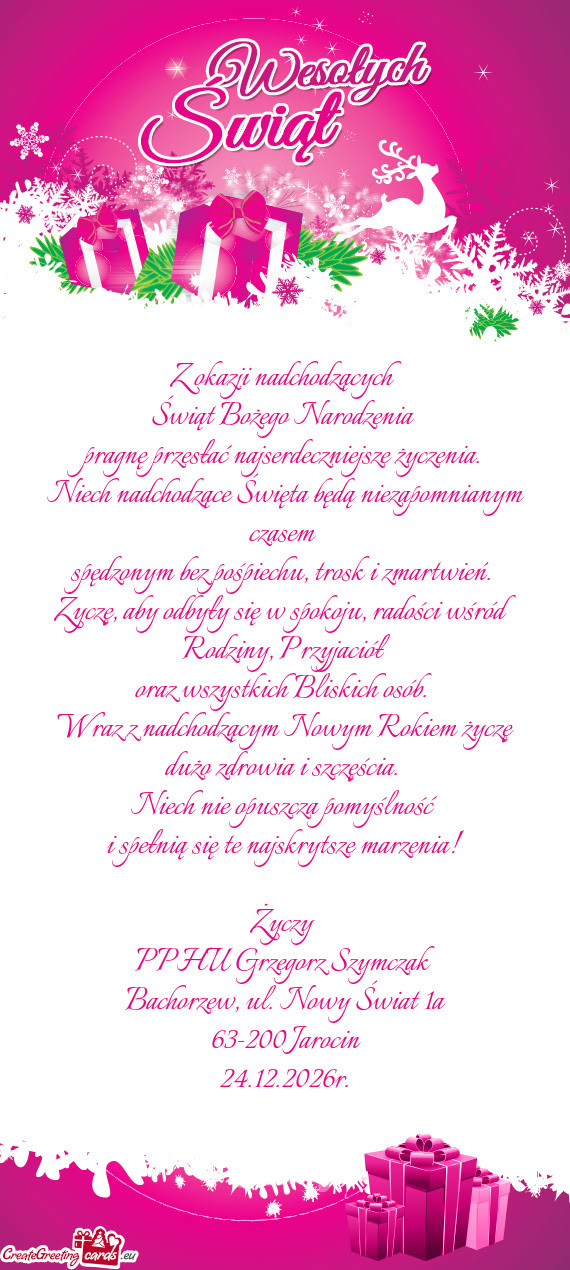 Wesołych
Świąt
Z okazji nadchodzących
Świąt Bożego Narodzenia
pragnę przesłać najserdeczniejsze życzenia.
Niech nadchodzące Święta będą niezapomnianym
czasem
spędzonym bez pośpiechu, trosk i zmartwień.
Życzę, aby odbyły się w spokoju, radości wśród
Rodziny, Przyjaciół
oraz wszystkich Bliskich osób.
Wraz z nadchodzącym Nowym Rokiem życzę
dużo zdrowia i szczęścia.
Niech nie opuszcza pomyślność
i spełnią się te najskrytsze marzenia!
Życzy
PPHU Grzegorz Szymczak
Bachorzew, ul. Nowy Świat 1a
63-200 Jarocin
24.12.2026r.
CreateGreetingcards.eu